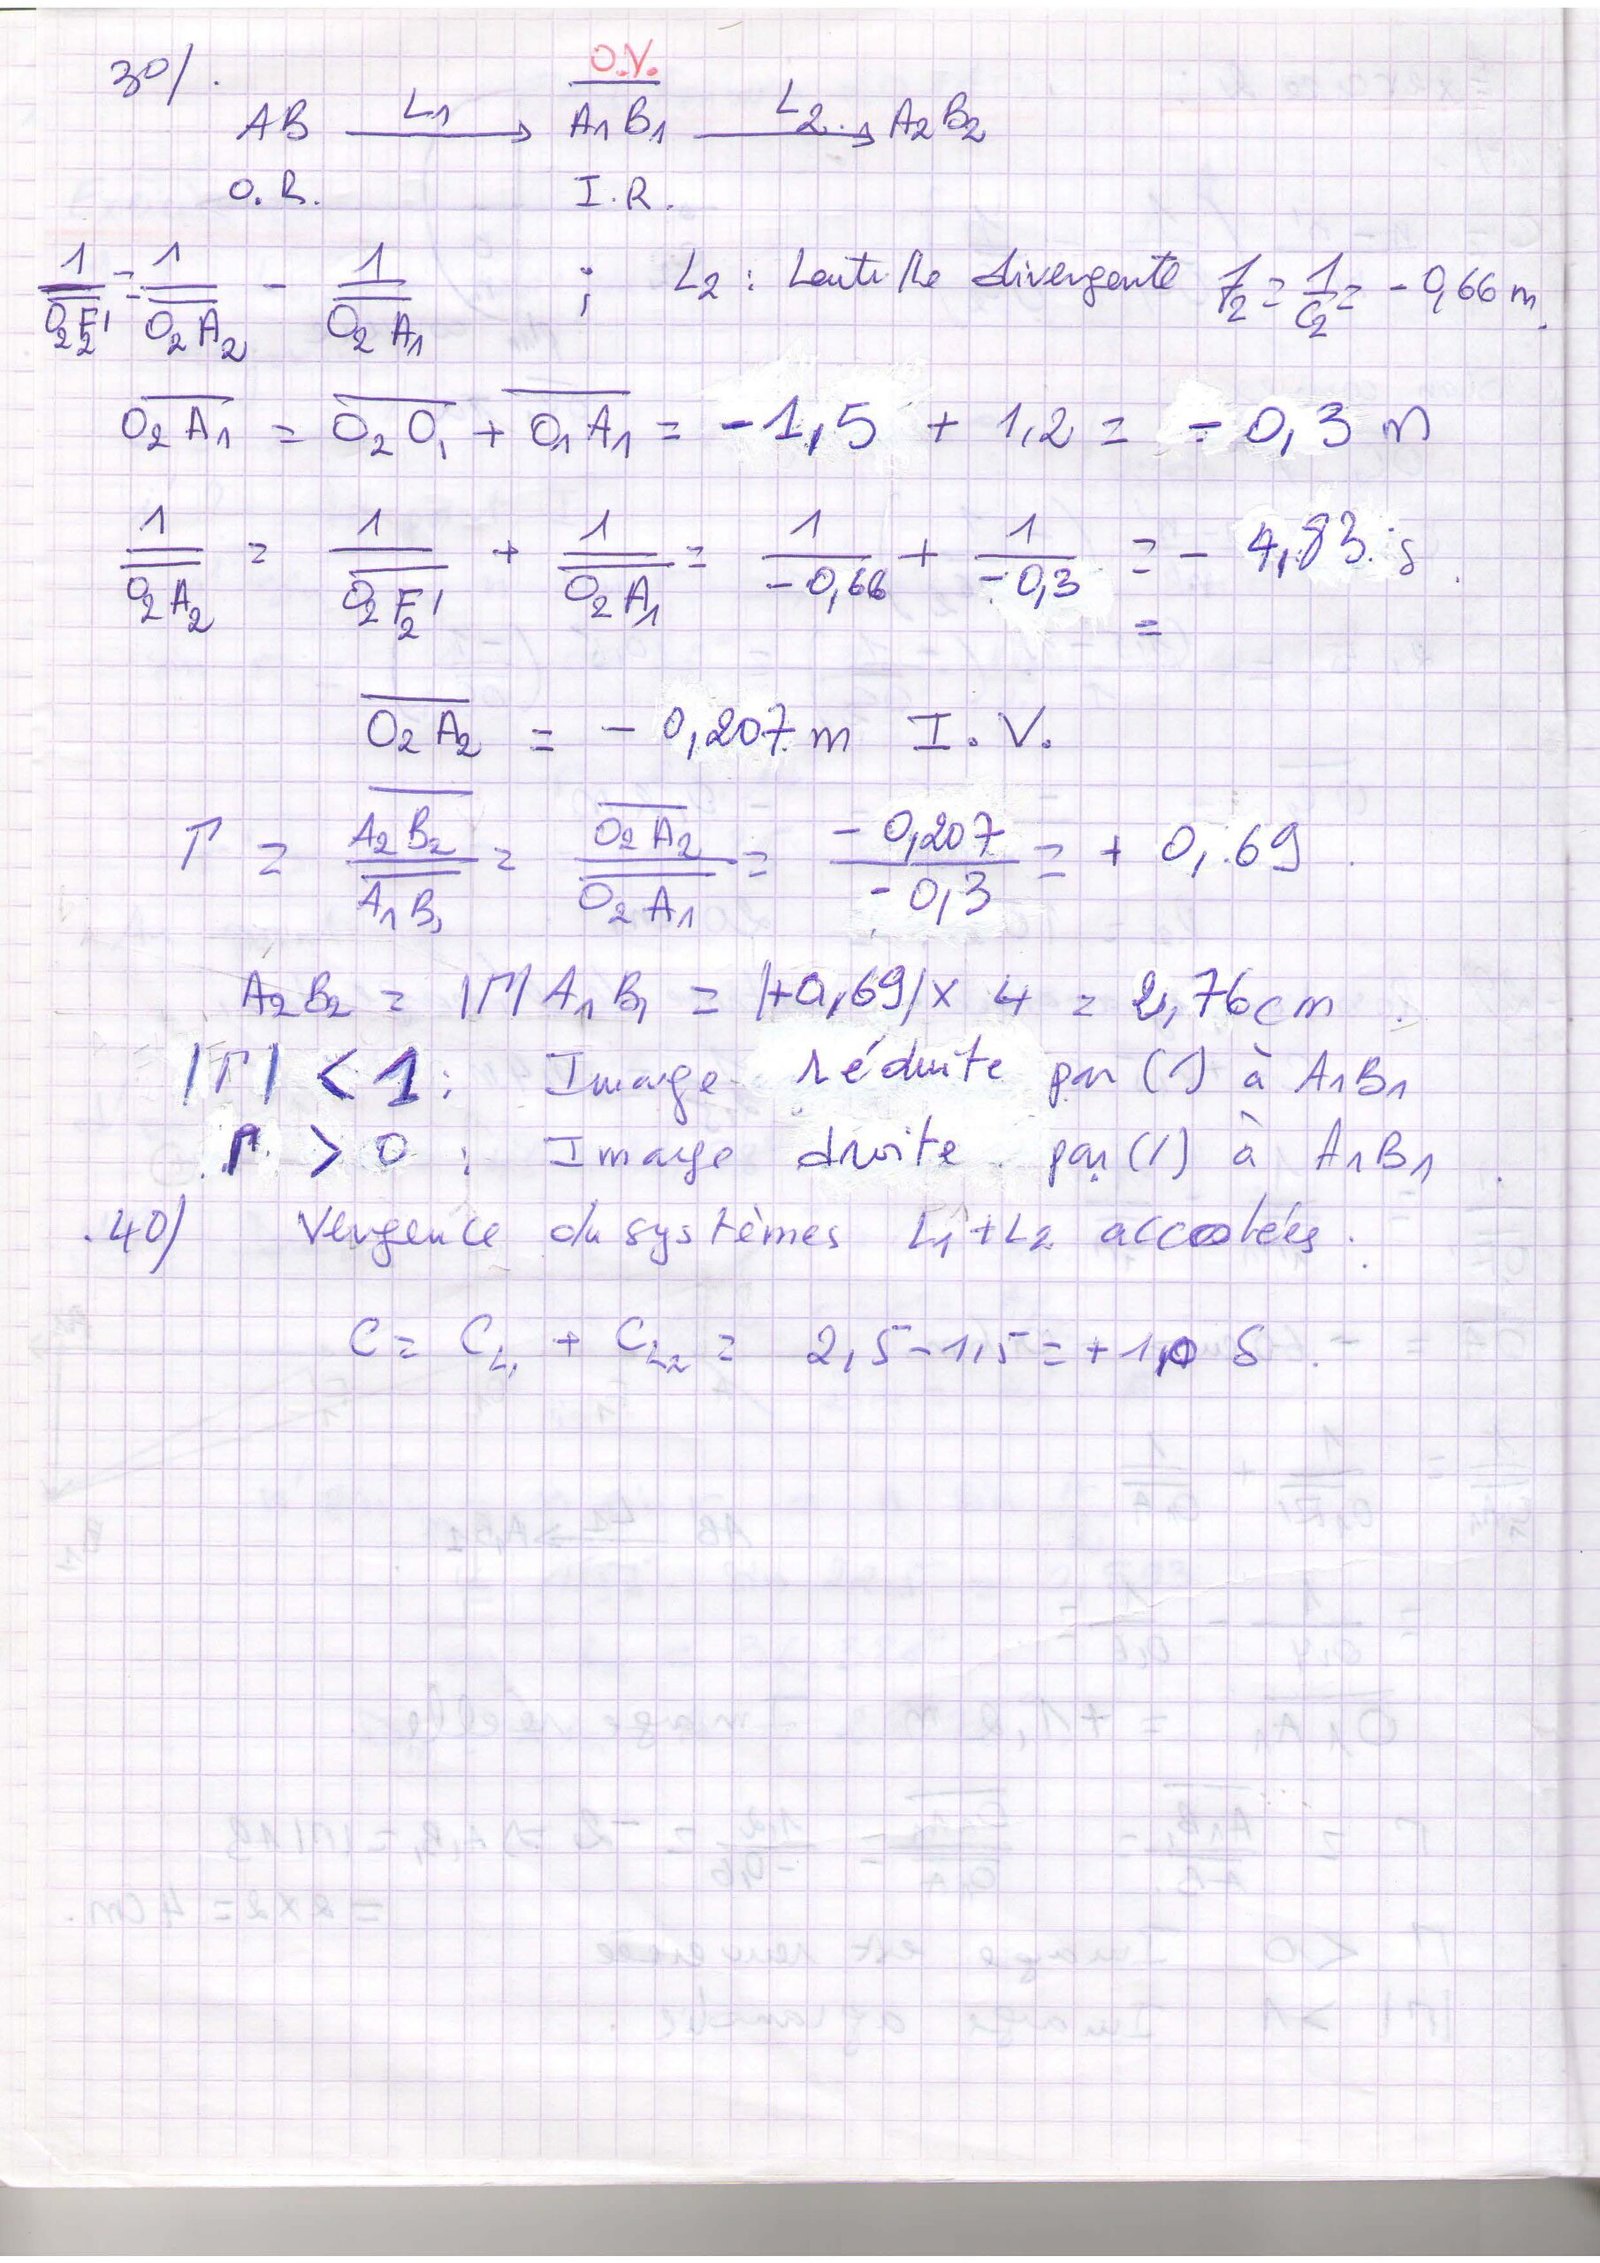 3°/.
O.V.
AB —L1→ A1B1 —L2→ A2B2
O.R. I.R.
1/O2F2' = 1/O2A2 - 1/O2A1 ; L2 : Lentille divergente f2 = 1/C2 = - 0,66 m.
O2A1 = O2O1 + O1A1 = - 1,5 + 1,2 = - 0,3 m
1/O2A2 = 1/O2F2' + 1/O2A1 = 1/-0,66 + 1/-0,3 = - 4,83 δ.
=
O2A2 = - 0,207 m I.V.
Γ = A2B2/A1B1 = O2A2/O2A1 = -0,207/-0,3 = + 0,69.
A2B2 = |Γ| A1B1 = |+0,69| x 4 = 2,76 cm.
|Γ| < 1 : Image réduite par (/) à A1B1
Γ > 0 : Image droite par (/) à A1B1.
.4°/ Vergence du systèmes L1+L2 accolées.
C = CL1 + CL2 = 2,5 - 1,5 = + 1,0 δ.